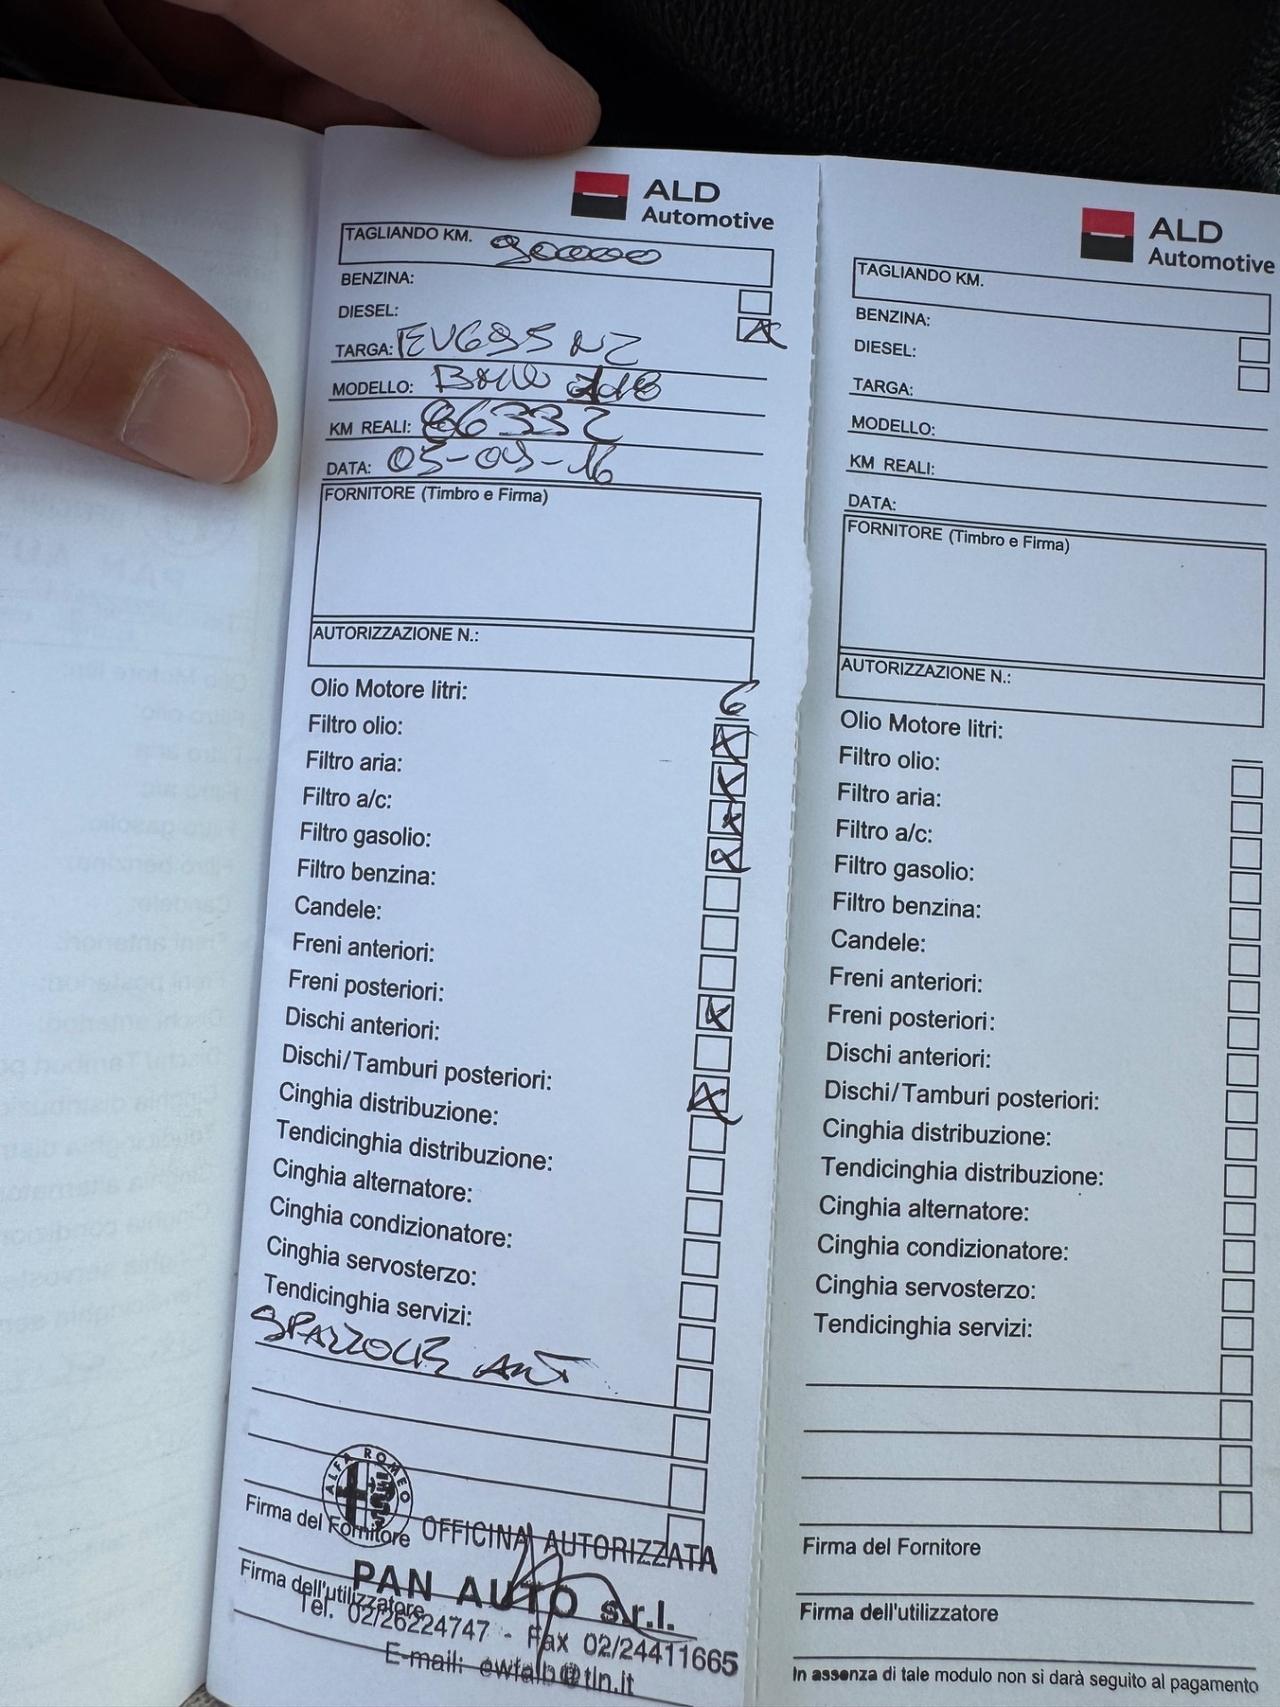 ALD
Automotive
TAGLIANDO KM. 90000
BENZINA:
DIESEL: X
TARGA: EV695NZ
MODELLO: 318
KM REALI: 86332
DATA: 05-09-16
FORNITORE (Timbro e Firma)
AUTORIZZAZIONE N.:
Olio Motore litri: 6
Filtro olio: X
Filtro aria: X
Filtro a/c: X
Filtro gasolio: X
Filtro benzina:
Candele:
Freni anteriori:
Freni posteriori: X
Dischi anteriori:
Dischi/Tamburi posteriori: X
Cinghia distribuzione:
Tendicinghia distribuzione:
Cinghia alternatore:
Cinghia condizionatore:
Cinghia servosterzo:
Tendicinghia servizi:
SPAZZOLE ANT
ALFA ROMEO
Firma del Fornitore
OFFICINA AUTORIZZATA
Firma dell'utilizzatore
PAN AUTO s.r.l.
Tel. 02/26224747 - Fax 02/24411665
E-mail:
ALD
Automotive
TAGLIANDO KM.
BENZINA:
DIESEL:
TARGA:
MODELLO:
KM REALI:
DATA:
FORNITORE (Timbro e Firma)
AUTORIZZAZIONE N.:
Olio Motore litri:
Filtro olio:
Filtro aria:
Filtro a/c:
Filtro gasolio:
Filtro benzina:
Candele:
Freni anteriori:
Freni posteriori:
Dischi anteriori:
Dischi/Tamburi posteriori:
Cinghia distribuzione:
Tendicinghia distribuzione:
Cinghia alternatore:
Cinghia condizionatore:
Cinghia servosterzo:
Tendicinghia servizi:
Firma del Fornitore
Firma dell'utilizzatore
In assenza di tale modulo non si darà seguito al pagamento